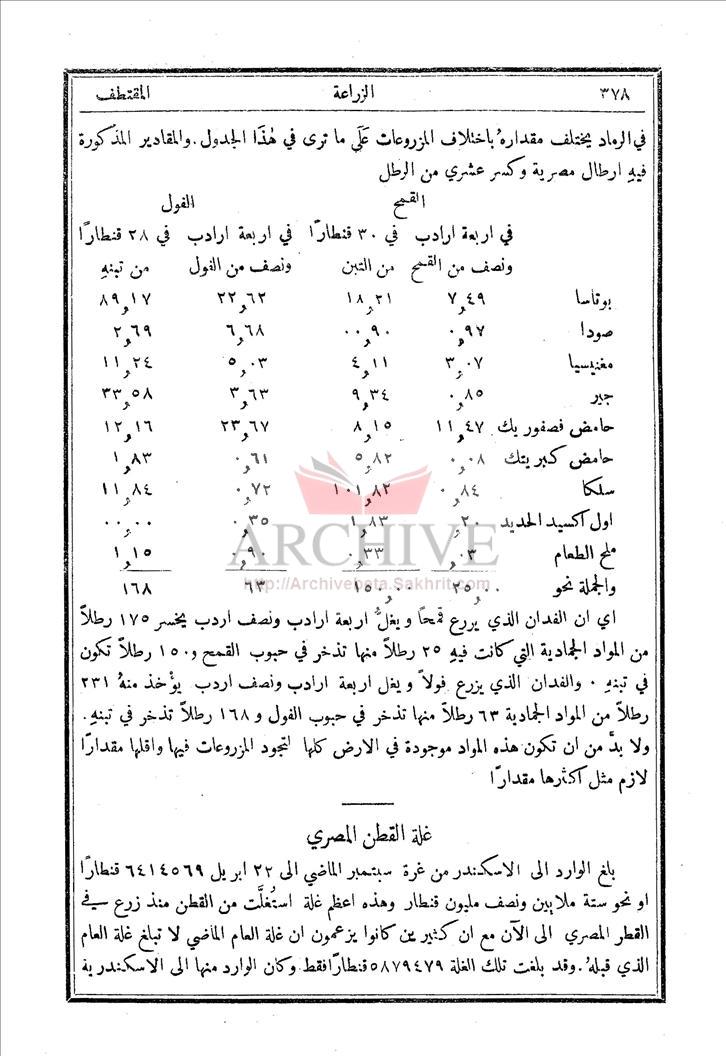 ٣٧٨ الزراعة المقتطف
في الرماد يختلف مقداره باختلاف المزروعات على ما ترى في هذا الجدول. والمقادير المذكورة
فيه ارطال مصرية وكسر عشري من الرطل
القمح الفول
في اربعة ارادب في ٣٠ قنطارًا في اربعة ارادب في ٢٨ قنطارًا
ونصف من القمح من التبن ونصف من الفول من تبنه
بوتاسا ٧,٤٩ ١٨,٢١ ٢٢,٦٢ ٨٩,١٧
صودا ٠,٩٧ ٠٠,٩٠ ٦,٦٨ ٢,٦٩
مغنيسيا ٣,٠٧ ٤,١١ ٥,٠٣ ١١,٢٤
جير ٠,٨٥ ٩,٣٤ ٣,٦٣ ٣٣,٥٨
حامض فصفوريك ١١,٤٧ ٨,١٥ ٢٣,٦٧ ١٢,١٦
حامض كبريتك ٠,٠٨ ٥,٨٢ ٠,٦١ ١,٨٣
سلكا ٠,٨٤ ١٠١,٨٢ ٠,٧٢ ١١,٨٤
اول اكسيد الحديد ٠,٢٠ ١,٨٣ ٠,٣٥ ٠٠,٠٠
ملح الطعام ٠,٠٣ ٠,٣٣ ٠,٩٠ ١,١٥
والجملة نحو ٢٥,٠٠ ١٥٠,٠٠ ٦٣ ١٦٨
ARCHIVE
http://Archivebeta.Sakhrit.com
اي ان الفدان الذي يزرع قمحًا ويغلُّ اربعة ارادب ونصف اردب يخسر ١٧٥ رطلاً
من المواد الجمادية التي كانت فيه ٢٥ رطلاً منها تذخر في حبوب القمح و١٥٠ رطلاً تكون
في تبنه. والفدان الذي يزرع فولاً ويغل اربعة ارادب ونصف اردب يؤْخذ منهُ ٢٣١
رطلاً من المواد الجمادية ٦٣ رطلاً منها تذخر في حبوب الفول و١٦٨ رطلاً تذخر في تبنه.
ولا بدَّ من ان تكون هذه المواد موجودة في الارض كلها لتجود المزروعات فيها واقلها مقدارًا
لازم مثل اكثرها مقدارًا
غلة القطن المصري
بلغ الوارد الى الاسكندر من غرة سبتمبر الماضي الى ٢٢ ابريل ٦٤١٤٥٦٩ قنطارًا
او نحو ستة ملايين ونصف مليون قنطار وهذه اعظم غلة استُغلَّت من القطن منذ زرع في
القطر المصري الى الآن مع ان كثيرين كانوا يزعمون ان غلة العام الماضي لا تبلغ غلة العام
الذي قبلهُ. وقد بلغت تلك الغلة ٥٨٧٩٤٧٩ قنطارًا فقط وكان الوارد منها الى الاسكندرية